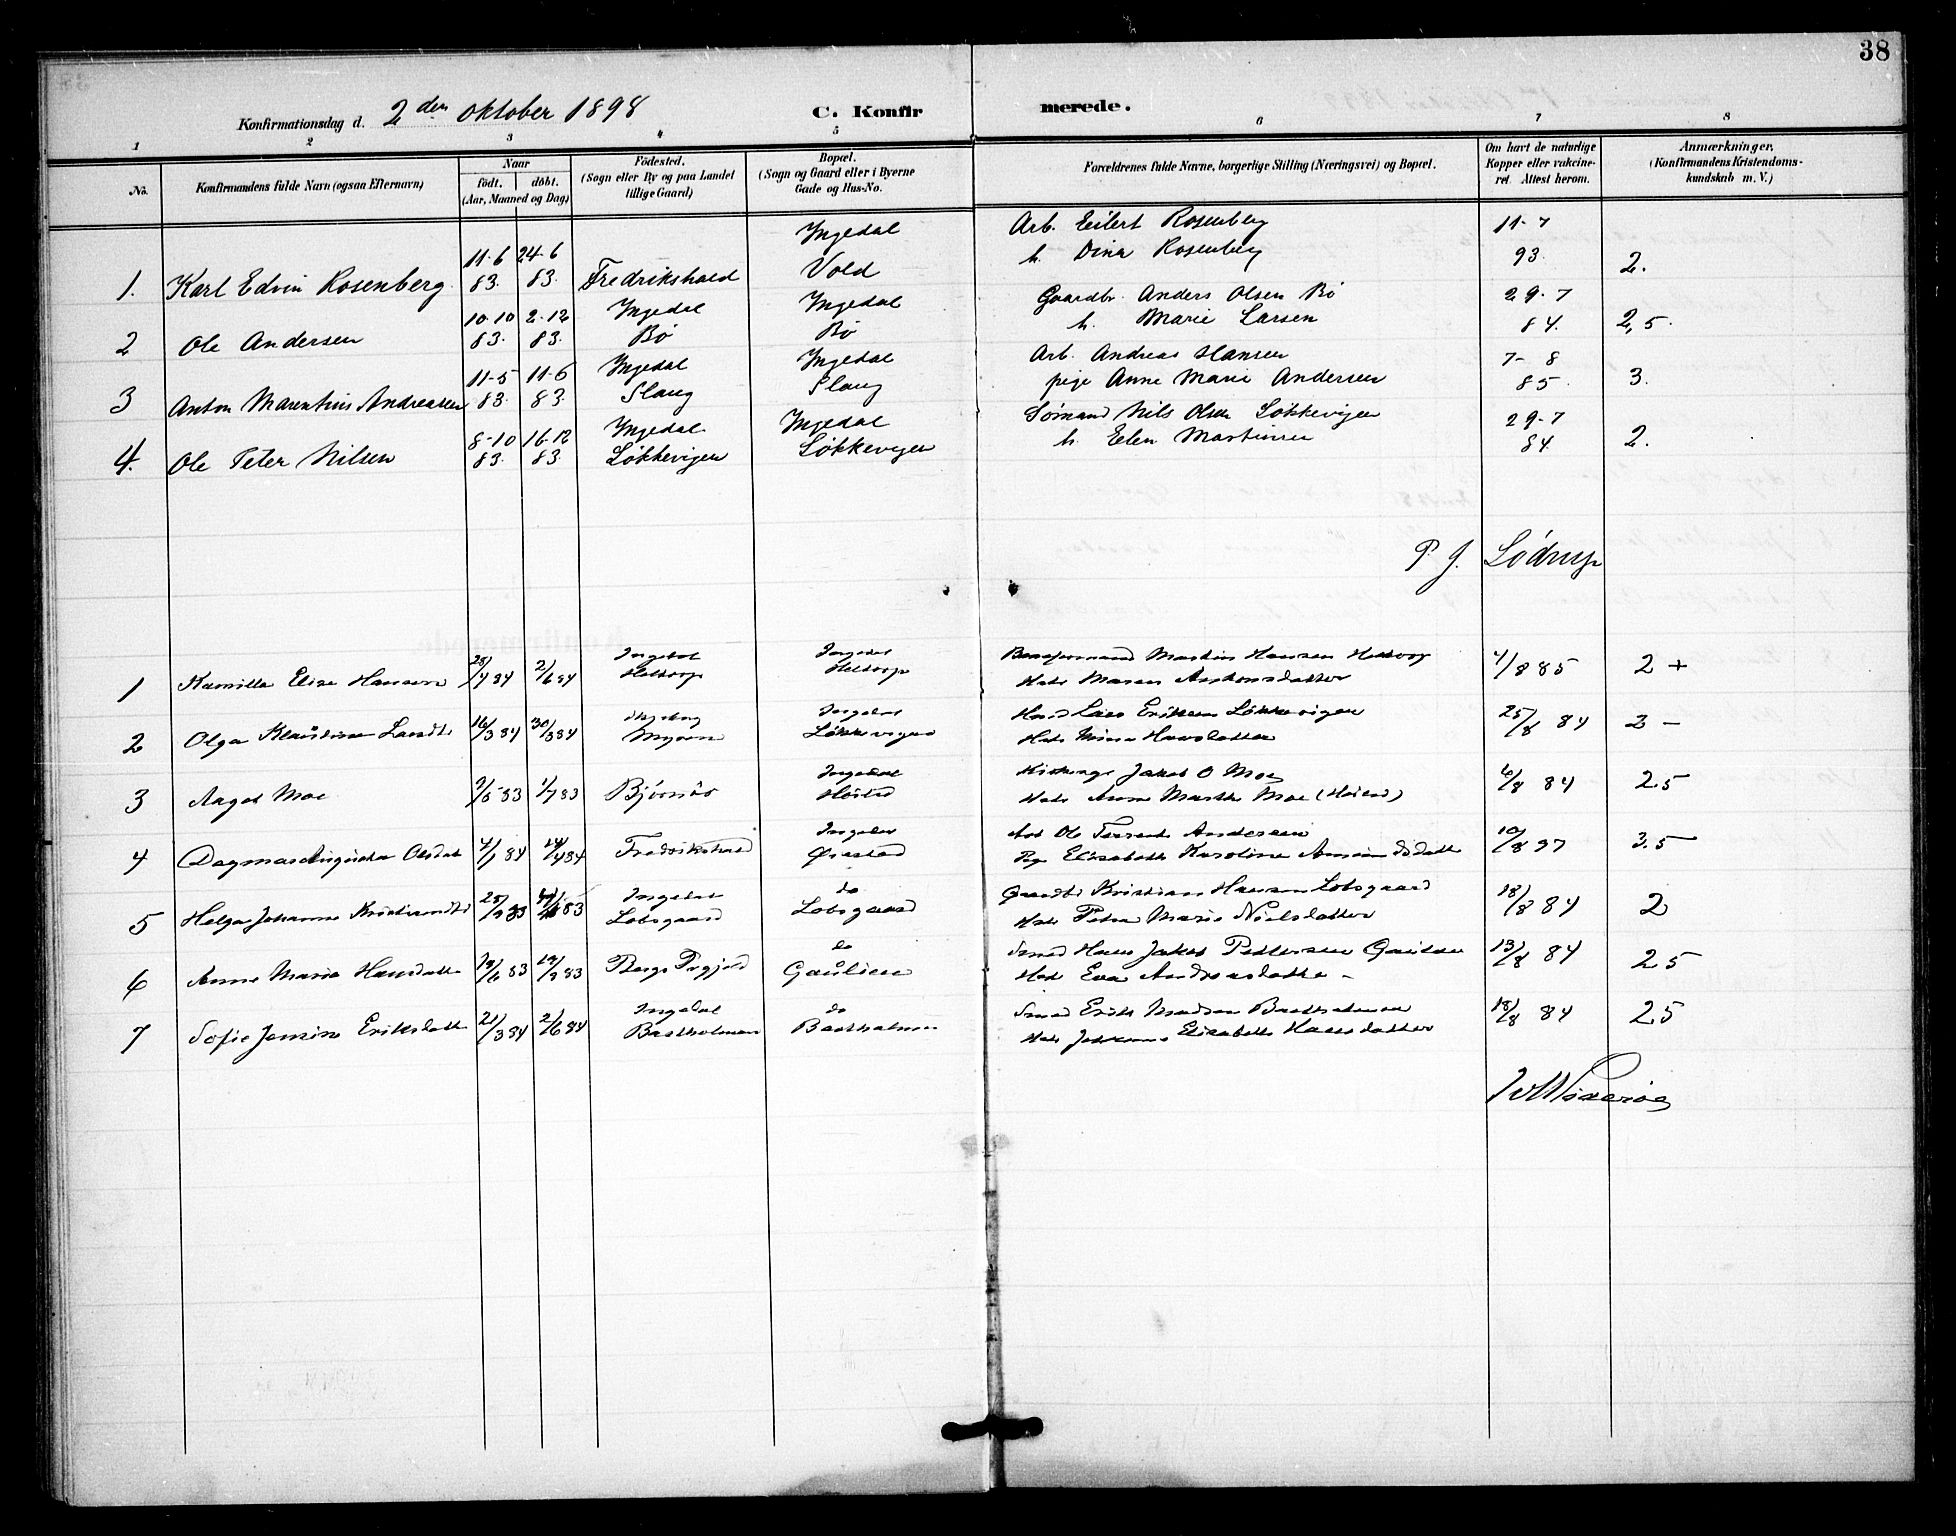 38
Konfirmationsdag d. 2den oktober 1898 C. Konfirmerede.
1 2 3 4 5 6 7 8
No. Konfirmandens fulde Navn (ogsaa Efternavn) Naar født. døbt. (Aar, Maaned og Dag) Fødested. (Sogn eller By og paa Landet tillige Gaard) Bopæl. (Sogn og Gaard eller i Byerne Gade og Hus-No. Forældrenes fulde Navne, borgerlige Stilling (Næringsvei) og Bopæl. Om havt de naturlige Kopper eller vakcineret. Attest herom. Anmærkninger, (Konfirmandens Kristendomskundskab m. V.)
Ingedal Arb. Eilert Rosenberg 11-7
11-6 24-6 h. Dina Rosenberg 93.
1. Karl Edvin Rosenberg 83. 83. Fredrikshald Vold 2.
10-10 2-12 Ingedal Ingedal Gaardbr. Anders Olsen Bø 29-7
2 Ole Andersen 83. 83. Bø Bø h. Marie Larsen 84. 2,5.
11-5 11-6 Ingedal Ingedal Arb. Andreas Hansen 7-8
3 Anton Marentius Andreasen 83. 83 Slang Slang pige Anne Marie Andersen 85. 3.
8-10 16-12 Ingedal Ingedal Sømand Nils Olsen Løkkevigen 29-7
4. Ole Peter Nilsen 83. 83 Løkkevigen Løkkevigen h. Elen Martinsen 84. 2.
P. J. Lødrup
Ingedal Ingedal Martin Hansen Heltorp
1 Kamilla Elise Hansen 28/4 84 2/6 84 Heltorp Heltorp Maren Antonsdatter 4/8 85 2 +
Ingedal Lars Eriksen Løkkevigen
2 Olga Klaudine 16/3 84 30/3 84 Løkkevigen Hansdatter 25/8 84 3 -
Ingedal Jakob O Moe
3 Aagot Moe 9/5 83 1/7 83 Bjørnør Høistad Anna Marthe Moe 6/8 84 2.5
Ingedal Arb Ole Andersen
4 Dagmar Augusta Olsdat 4/1 84 14/4 84 Fredrikshald Ørestad Pge Elisabeth Karoline 10/8 97 3.5
Ingedal do Gaardbr Kristian Hansen Lobsgaard
5 Helga Johanne Kristiansdt 25/9 83 83 Lobsgaard Lobsgaard Petra Marie Nielsdatter 18/8 84 2
do Hans Jakob Pettersen Gaulien
6 Anne Marie Hansdatt 83 83 Berg Gaulien Eva Andreasdatter - 13/8 84 2 5
Ingedal do Erik Madsen Bastholmen
7 Sofie Jensine Eriksdatt 21/3 84 2/6 84 Bastholmen Bastholmen Johanne Elisabeth Hansdatter 18/8 84 2.5